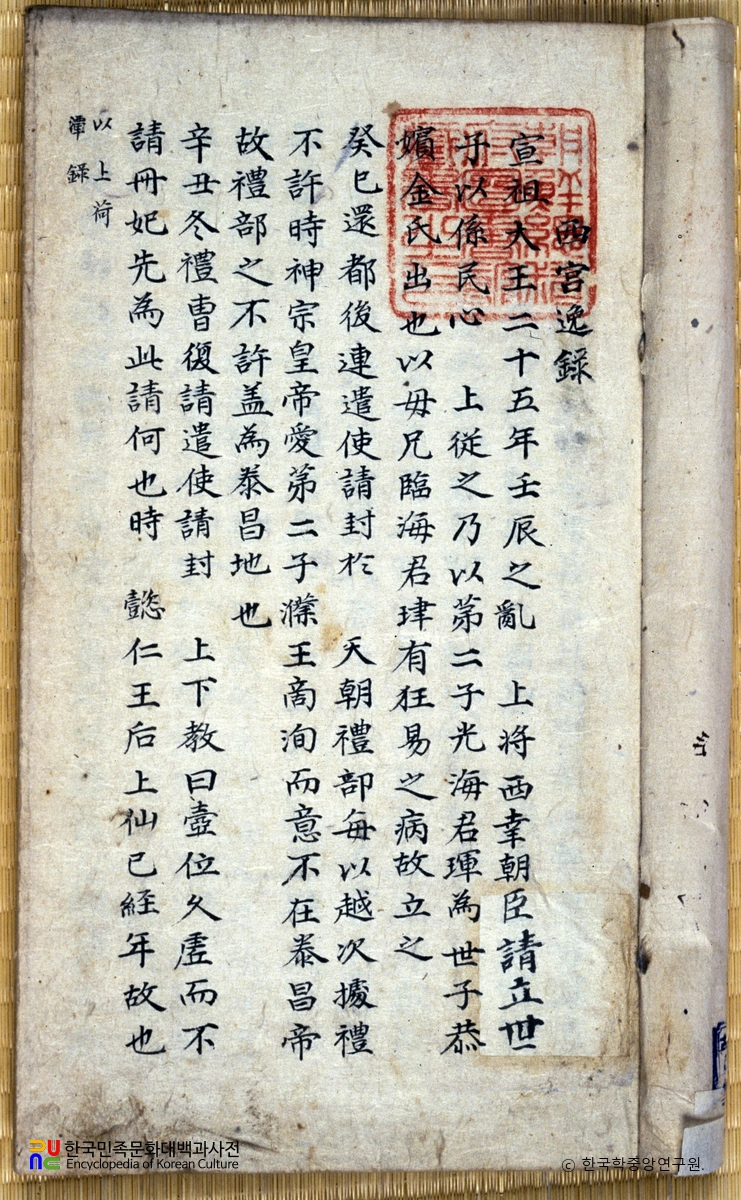 西宮逸錄
宣祖大王二十五年壬辰之亂 上將西幸朝臣請立世
子以係民心 上從之乃以第二子光海君琿為世子恭
嬪金氏出也以母兄臨海君珒有狂易之病故立之
癸巳還都後連遣使請封於 天朝禮部每以越次據禮
不許時神宗皇帝愛第二子瀿王啇洵而意不在泰昌帝
故禮部之不許盖為泰昌地也
辛丑冬禮曹復請遣使請封 上下教曰壼位久虛而不
請冊妃先為此請何也時 懿仁王后上仙已經年故也
以上荷
潭錄
한국민족문화대백과사전
Encyclopedia of Korean Culture
© 한국학중앙연구원